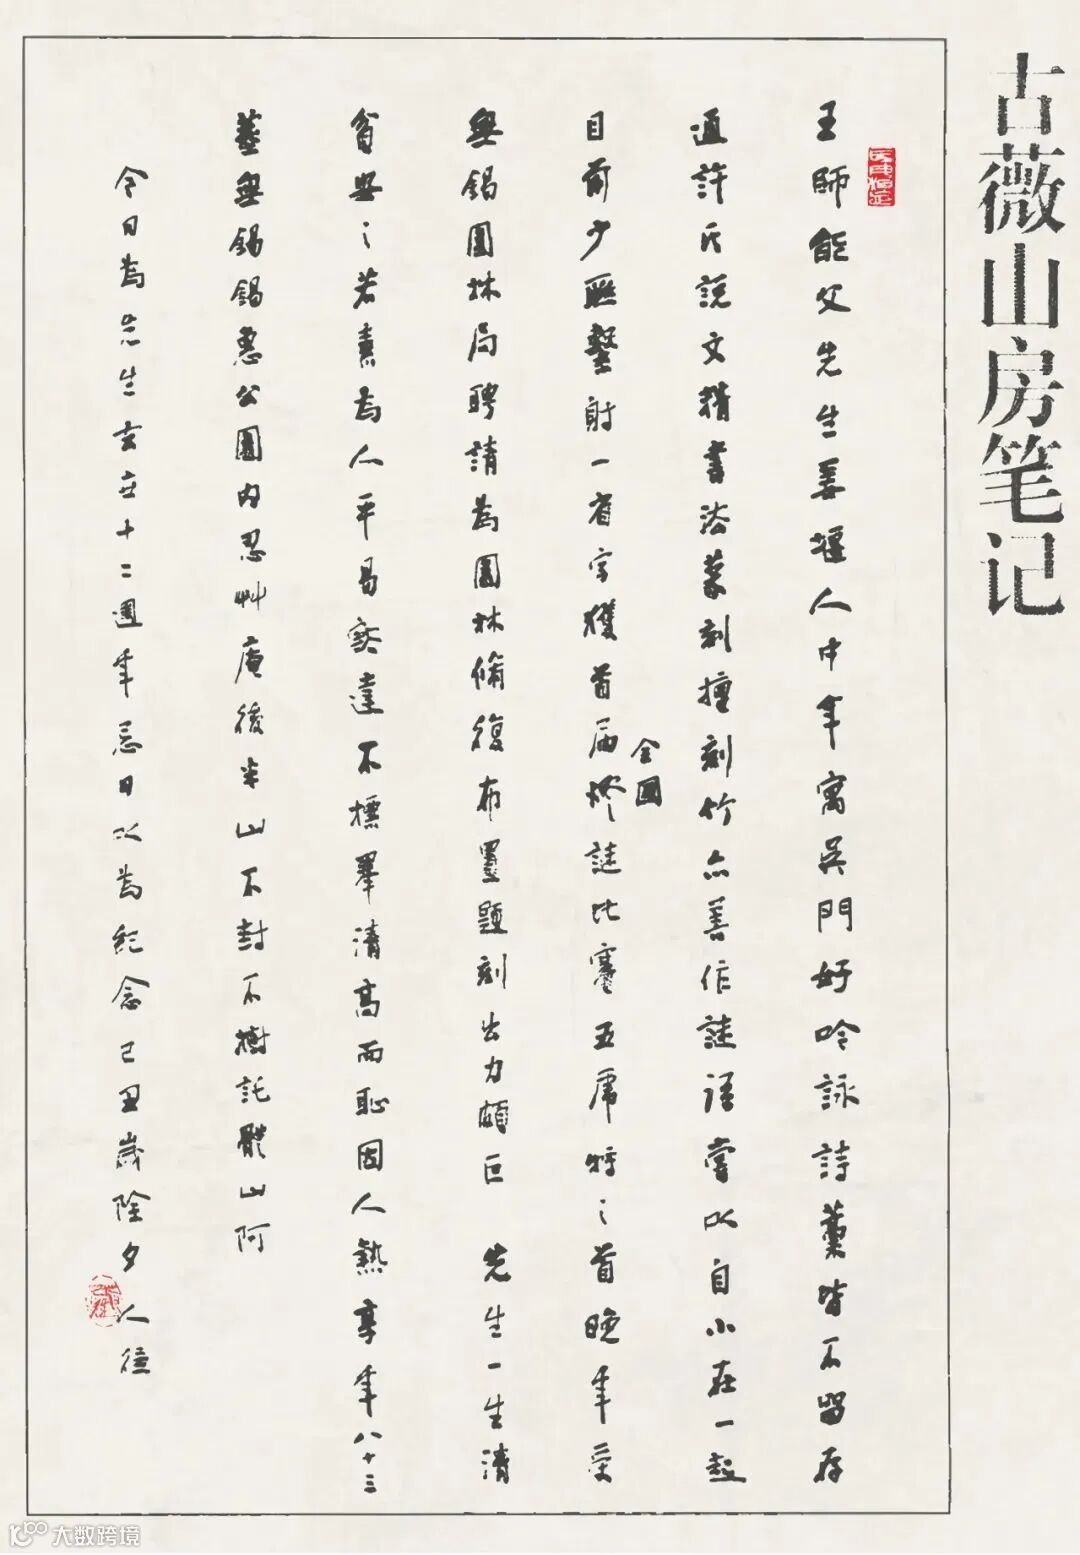 古薇山房笔记
王師能父先生姜堰人中年寓吳門好吟詠詩藁皆不留存
通許氏說文精書法篆刻擅刻竹亦善作謎語嘗以自小在一起
目前少聯繫射一省字獲首屆全國燈謎比賽五虎將之首晚年受
無錫園林局聘請為園林脩復布置題刻出力頗巨 先生一生清
貧與之若素為人平易實達不標舉清高而恥因人熱享年八十三
葬無錫錫惠公園内忍艸庵後半山不封不樹託體山阿
今日為先生去世十二週年忌日以為紀念己丑歲除夕人
大数跨境